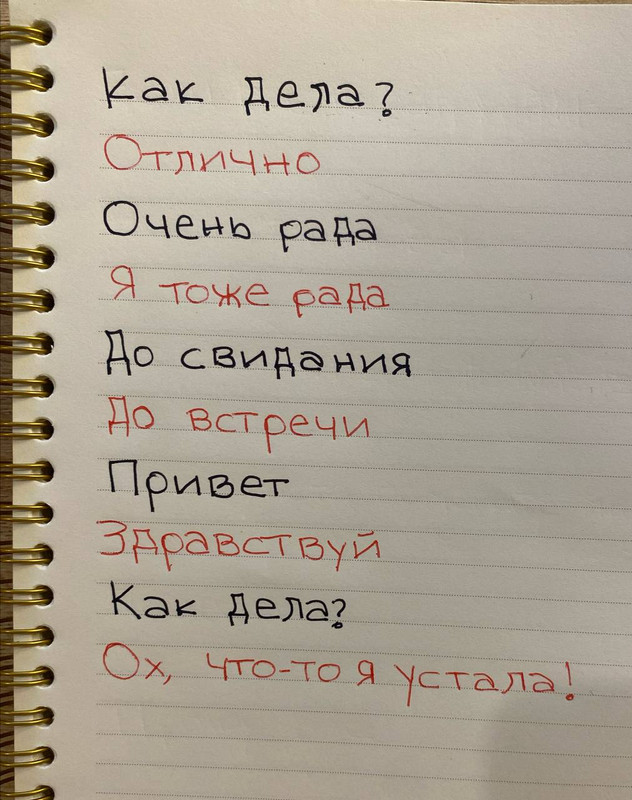 Как дела?
Отлично
Очень рада
Я тоже рада
До свидания
До встречи
Привет
Здравствуй
Как дела?
Ох, что-то я устала!